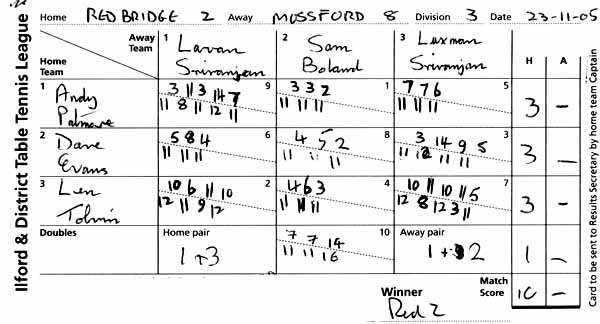 Home REDBRIDGE 2 Away MOSSFORD 8 Division 3 Date 23-11-05
Ilford & District Table Tennis League
Away Team 1 Lavan Srivranjan 2 Sam Boland 3 Luxman Srivranjan H A
Home Team
1 Andy 3 11 3 14 7 9 3 3 2 1 7 7 6 5 3 –
11 8 11 12 11 11 11 11 11 11 11
2 Dave Evans 5 8 4 6 4 5 2 8 3 14 9 5 3 –
11 11 11 11 11 11 11 12 11 11
3 Len 10 6 11 10 2 4 6 3 4 10 11 10 11 5 7 3 –
12 11 9 12 11 11 11 12 8 12 3 11
Doubles Home pair 7 7 14 10 Away pair
1+3 11 11 16 1+2 1 –
Winner Red 2 Match Score 10 –
Card to be sent to Results Secretary by home team Captain